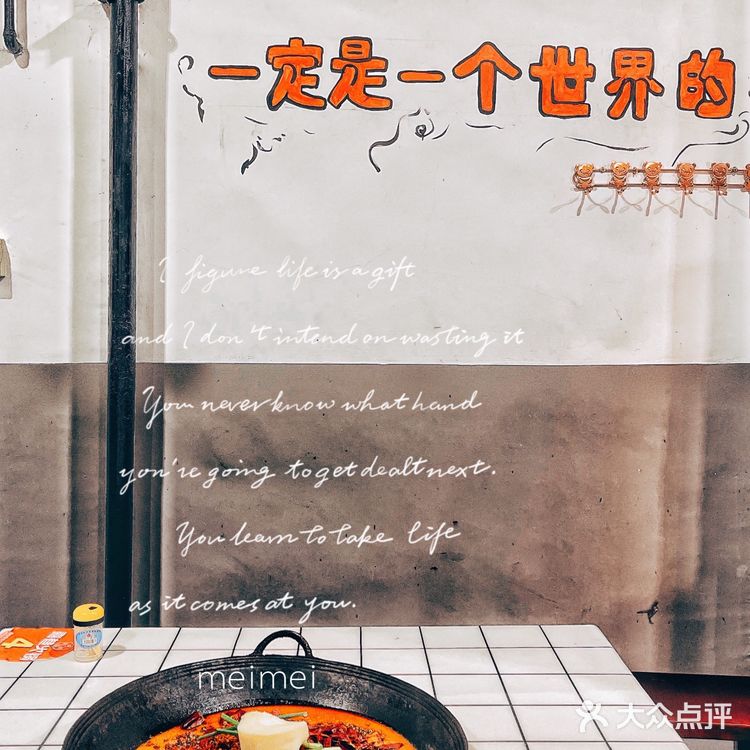 一定是一个世界的
I figure life is a gift
and I don't intend on wasting it
You never know what hand
you're going to get dealt next.
You learn to take life
as it comes at you.
meimei
大众点评